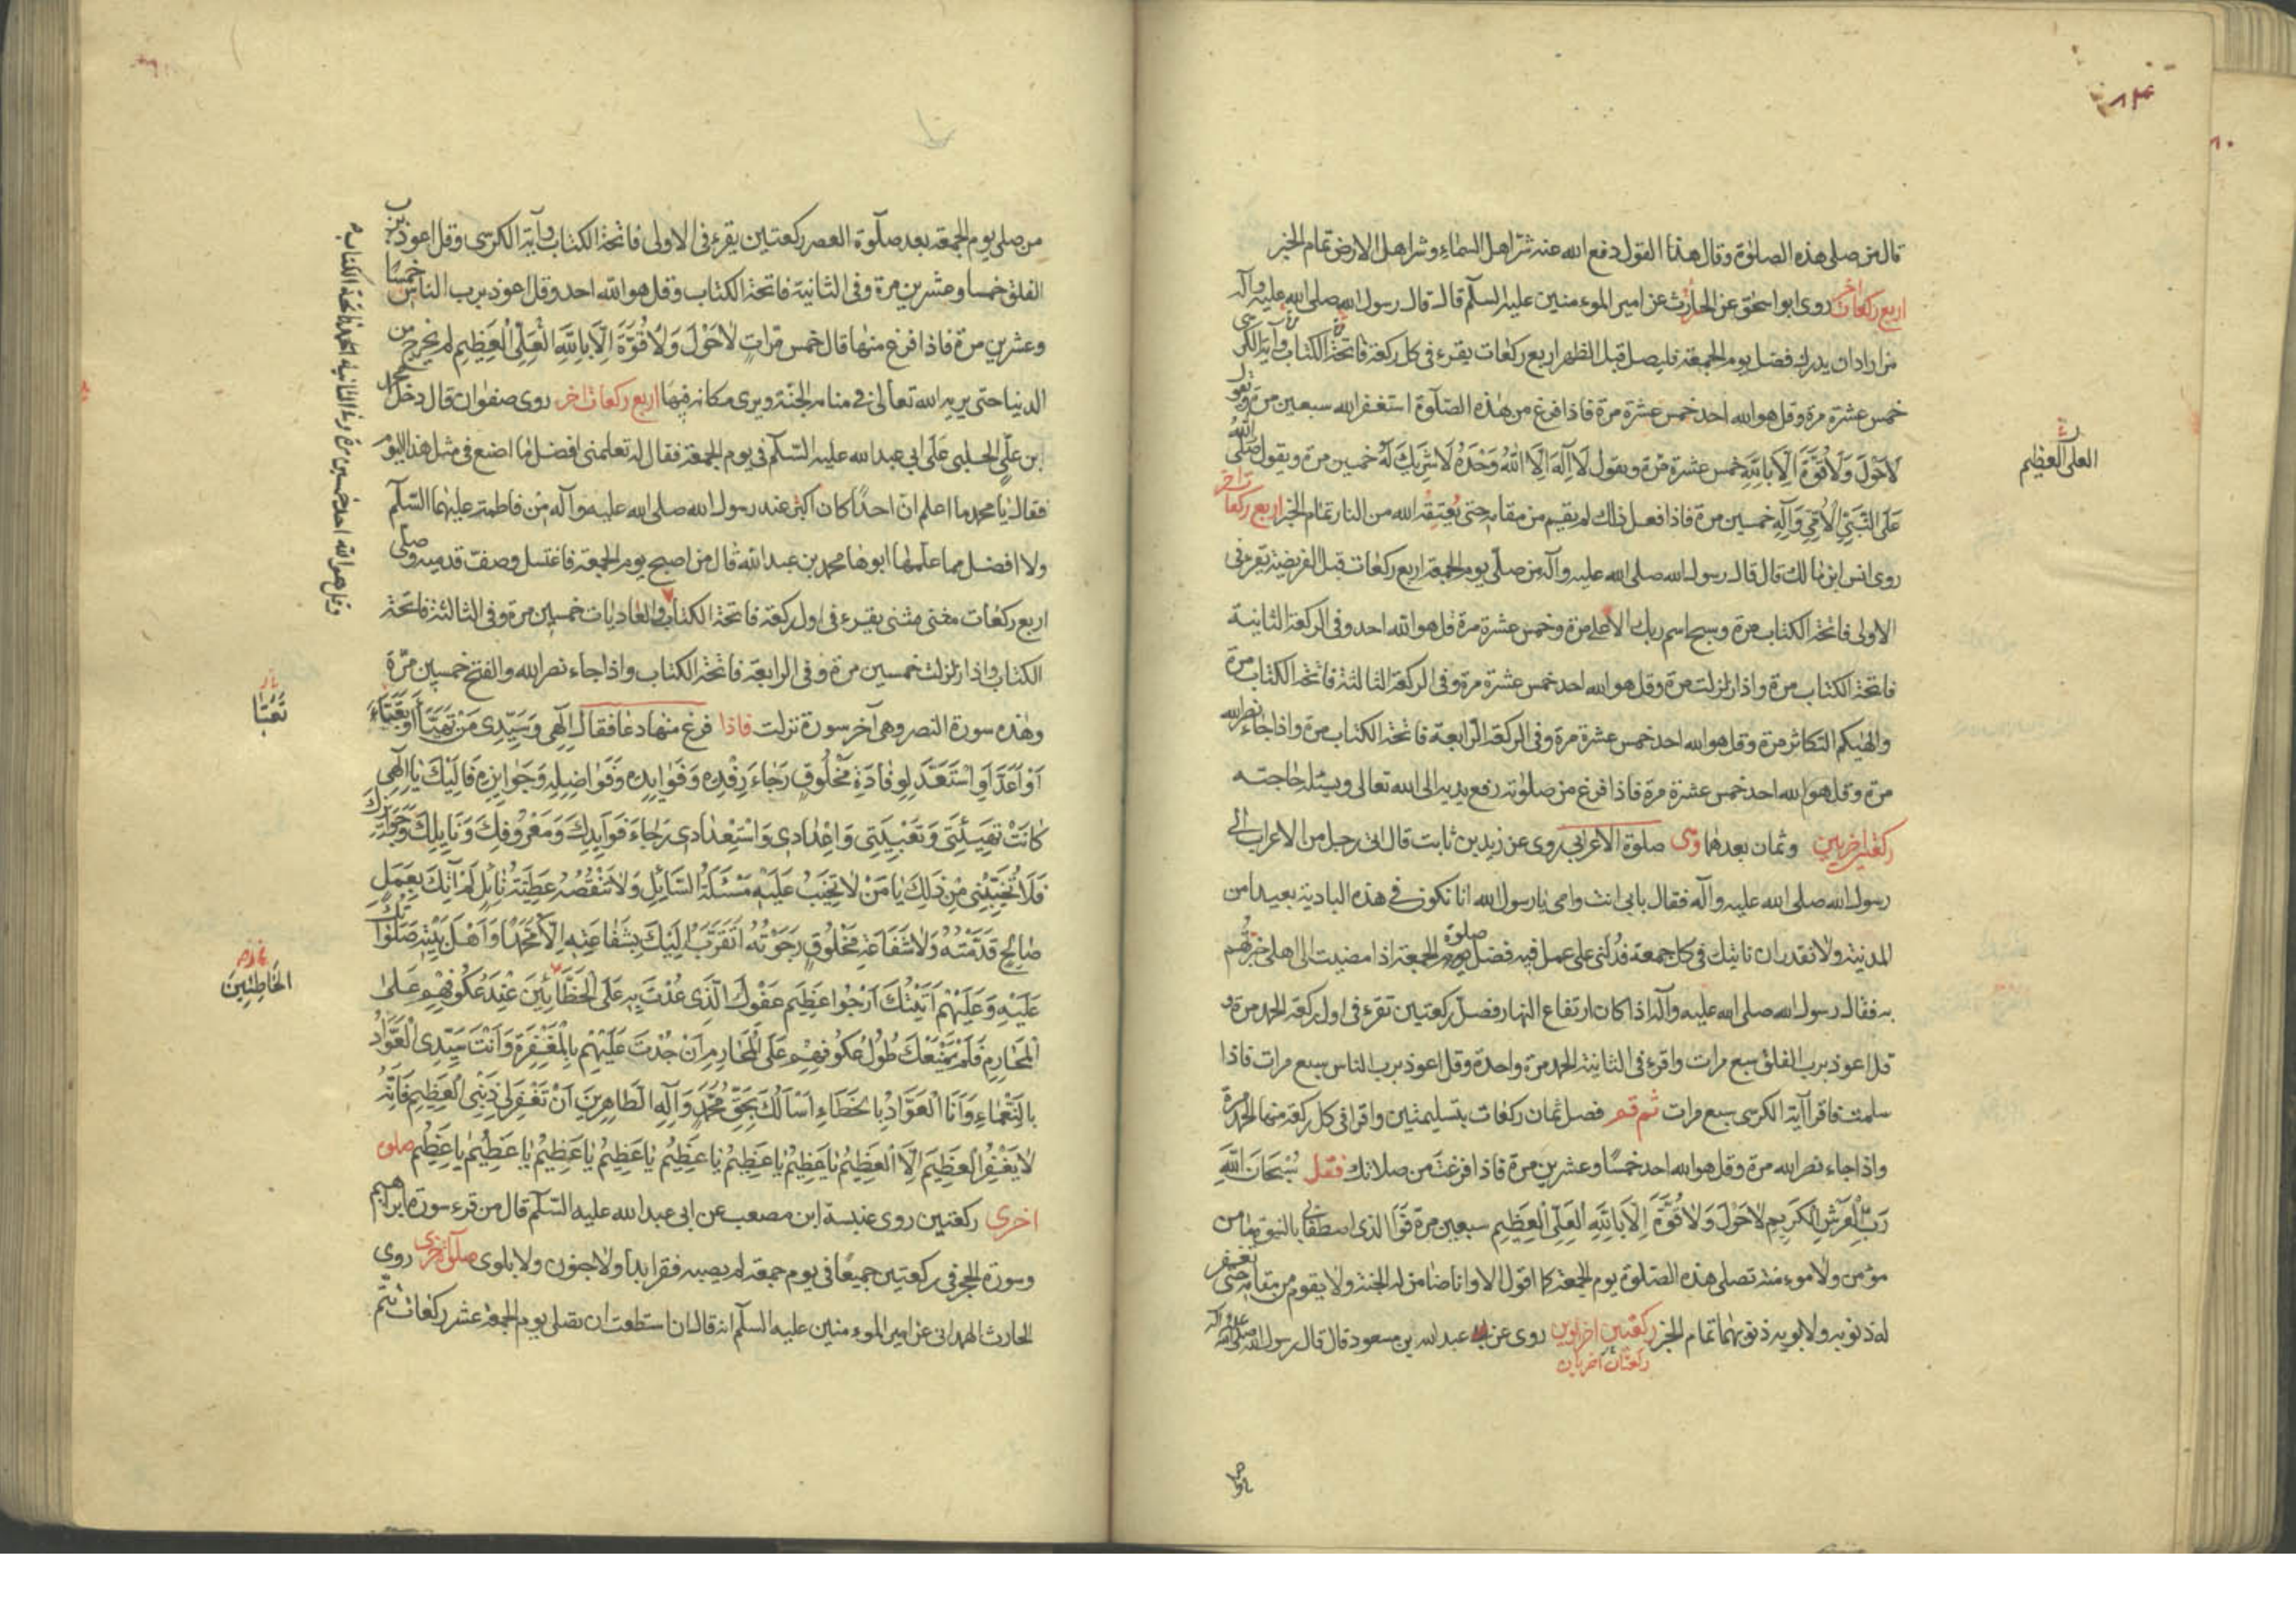 ٨٣
قال من صلى هذه الصلوٰة وقال هذا القول دفع الله عنه شر اهل السماء وشر اهل الارض تمام الخبر
اربع ركعات اخر روى ابو اسحٰق عن الحارث عن امير الموءمنين عليه السلم قال قال رسول الله صلى الله عليه وآله
من اراد ان يدرك فضل يوم الجمعة فليصل قبل الظهر اربع ركعات يقرء فى كل ركعة فاتحة الكتاب وآية الكرسى
خمس عشرة مرة وقل هو الله احد خمس عشرة مرة فاذا فرغ من هذه الصلوة استغفر الله سبعين مرة ويقول
لَا حَوْلَ وَلَا قُوَّةَ اِلَّا بِاللهِ خمس عشرة مرّة ويقول لَا اِلٰهَ اِلَّا اللهُ وَحْدَهُ لَا شَرِيكَ لَهُ خمسين مرة ويقول صَلَّى اللهُ
العلى العظيم
عَلَى النَّبِيِّ الْاُمِّيِّ وَآلِهِ خمسين مرة فاذا فعل ذلك لم يقم من مقامه حتى يُعتِقَه الله من النار تمام الخبر اربع ركعات اخر
روى انس ابن مالك قال قال رسول الله صلى الله عليه وآله من صلّى يوم الجمعة اربع ركعات قبل الفريضة يقرء فى
الاولى فاتحة الكتاب مرة وسبح اسم ربك الاعلى مرة وخمس عشرة مرة قل هو الله احد وفى الركعة الثانية
فاتحة الكتاب مرة واذا زلزلت مرة وقل هو الله احد خمس عشرة مرة وفى الركعة الثالثة فاتحة الكتاب مرة
والهٰيكم التكاثر مرة وقل هو الله احد خمس عشرة مرة وفى الركعة الرابعة فاتحة الكتاب مرة واذا جاء نصر الله
مرة وقل هو الله احد خمس عشرة مرة فاذا فرغ من صلوته رفع يديه الى الله تعالى ويسئله حاجته
ركعتين اخريين وثمان بعدهما وهى صلوة الاعرابى روى عن زيد بن ثابت قال اتى رجل من الاعراب الى
رسول الله صلى الله عليه وآله فقال بابى انت وامى يا رسول الله انا نكون فى هذه البادية بعيدا من
المدينة ولا نقدر ان ناتيك فى كل جمعة فدلنى على عمل فيه فضل صلوة يوم الجمعة اذا مضيت الى اهلى خبرتهم
به فقال رسول الله صلى الله عليه وآله اذا كان ارتفاع النهار فصل ركعتين تقرء فى اول ركعة الحمد مرة و
قل اعوذ برب الفلق سبع مرات واقرء فى الثانية الحمد مرة واحدة وقل اعوذ برب الناس سبع مرات فاذا
سلمت فاقرا آية الكرسى سبع مرات ثم قم فصل ثمان ركعات بتسليمتين واقرا فى كل ركعة منها الحمد مرة
واذا جاء نصر الله مرة وقل هو الله احد خمسًا وعشرين مرة فاذا فرغت من صلاتك فقل سُبْحَانَ اللهِ
رَبِّ الْعَرْشِ الْكَرِيمِ لَا حَوْلَ وَلَا قُوَّةَ اِلَّا بِاللهِ الْعَلِيِّ الْعَظِيمِ سبعين مرة فوالذى اصطفانى بالنبوة ما من
مؤمن ولا موءمنة تصلى هذه الصلوة يوم الجمعة كما اقول الا وانا ضامن له الجنة ولا يقوم من مقامه حتى تغفر
له ذنوبه ولابويه ذنوبهما تمام الخبر ركعتين اخراوين روى عن عبد الله بن مسعود قال قال رسول الله صلى الله عليه وآله
ركعتان اخريان
من صلى يوم الجمعة بعد صلوة العصر ركعتين يقرء فى الاولى فاتحة الكتاب وآية الكرسى وقل اعوذ برب
الفلق خمسا وعشرين مرة وفى الثانية فاتحة الكتاب وقل هو الله احد وقل اعوذ برب الناس خمسًا
وعشرين مرة فاذا فرغ منها قال خمس مرّاتٍ لَا حَوْلَ وَلَا قُوَّةَ اِلَّا بِاللهِ الْعَلِيِّ الْعَظِيمِ لم يخرج من
الدنيا حتى يريه الله تعالى فى منامه الجنة ويرى مكانه فيها اربع ركعات اخر روى صفوان قال دخل محمد
بن علىّ الحلبى عَلَى ابى عبد الله عليه السّلم فى يوم الجمعة فقال له تعلمنى افضل ما اصنع فى مثل هذا اليوم
فقال يا محمد ما اعلم ان احدًا كان اكبر عند رسول الله صلى الله عليه وآله من فاطمة عليهما السّلم
ولا افضل مما علمها ابوها محمد بن عبد الله قال من اصبح يوم الجمعة فاغتسل وصفّ قدميه وصلّى
اربع ركعات مثنى مثنى يقرء فى اول ركعة فاتحة الكتاب والعاديات خمسين مرة وفى الثالثة فاتحة
وقل هو الله احد خمسين مرة وفى الثانية الحمد فاتحة الكتاب
الكتاب واذا زلزلت خمسين مرة وفى الرابعة فاتحة الكتاب واذا جاء نصر الله والفتح خمسين مرّة
وهٰذه سورة النصر وهى آخر سورة نزلت فاذا فرغ منها دعا فقال اِلٰهِى وَسَيِّدِى مَنْ تَهَيَّأَ اَوْ تَعَبَّأَ
تَعَبَّا
اَوْ اَعَدَّ اَوِ اسْتَعَدَّ لِوِفَادَةِ مَخْلُوقٍ رَجَاءَ رِفْدِهِ وَفَوَايِدِهِ وَفَوَاضِلِهِ وَجَوَايِزِهِ فَاِلَيْكَ يَا اِلٰهِى
كَانَتْ تَهْيِئَتِى وَتَعْبِيَتِى وَاِعْدَادِى وَاسْتِعْدَادِى رَجَاءَ فَوَايِدِكَ وَمَعْرُوفِكَ وَنَايِلِكَ وَجَوَايِزِكَ
فَلَا تُخَيِّبْنِى مِنْ ذٰلِكَ يَا مَنْ لَا تَخِيبُ عَلَيْهِ مَسْئَلَةُ السَّايِلِ وَلَا تَنْقُصُهُ عَطِيَّةُ نَايِلٍ لَمْ آتِكَ بِعَمَلٍ
صَالِحٍ قَدَّمْتُهُ وَلَا شَفَاعَةِ مَخْلُوقٍ رَجَوْتُهُ اَتَقَرَّبُ اِلَيْكَ بِشَفَاعَتِهِ اِلَّا مُحَمَّدًا وَاَهْلَ بَيْتِهِ صَلَوَاتُكَ
عَلَيْهِ وَعَلَيْهِمْ اَتَيْتُكَ اَرْجُو عَظِيمَ عَفْوِكَ الَّذِى عُدْتَ بِهِ عَلَى الْخَطَّائِينَ عِنْدَ عُكُوفِهِمْ عَلَى
الْخَاطِئِينَ
الْمَحَارِمِ فَلَمْ يَمْنَعْكَ طُولُ عُكُوفِهِمْ عَلَى الْمَحَارِمِ اَنْ جُدْتَ عَلَيْهِمْ بِالْمَغْفِرَةِ وَاَنْتَ سَيِّدِى الْعَوَّادُ
بِالنَّعْمَاءِ وَاَنَا الْعَوَّادُ بِالْخَطَاءِ اَسْاَلُكَ بِحَقِّ مُحَمَّدٍ وَآلِهِ الطَّاهِرِينَ اَنْ تَغْفِرَ لِى ذَنْبِىَ الْعَظِيمَ فَاِنَّهُ
لَا يَغْفِرُ الْعَظِيمَ اِلَّا الْعَظِيمُ يَا عَظِيمُ يَا عَظِيمُ يَا عَظِيمُ يَا عَظِيمُ يَا عَظِيمُ يَا عَظِيمُ يَا عَظِيمُ صلوة
اخرى ركعتين روى عنبسة ابن مصعب عن ابى عبد الله عليه السّلم قال من قرء سورة ابراهيم
وسورة الحجر فى ركعتين جميعًا فى يوم جمعة لم يصبه فقر ابدا ولا جنون ولا بلوى صلوة اخرى روى
الحارث الهمدانى عن امير الموءمنين عليه السلم انه قال ان استطعت ان تصلى يوم الجمعة عشر ركعات تتم